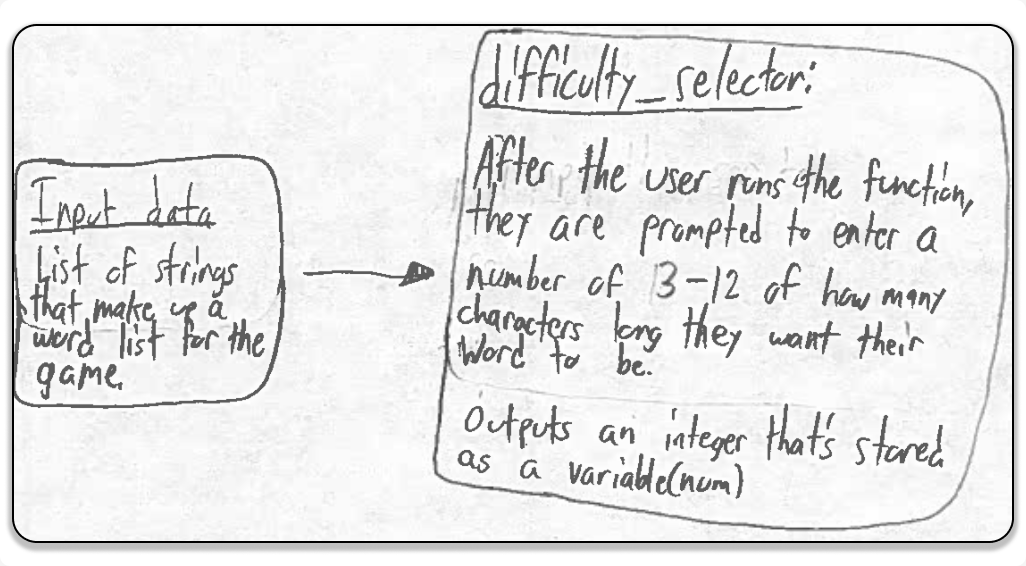 Input data
List of strings
that make up a
word list for the
game.
difficulty_selector:
After the user runs the function,
they are prompted to enter a
number of 3-12 of how many
characters long they want their
word to be.
Outputs an integer that's stored
as a variable(num)